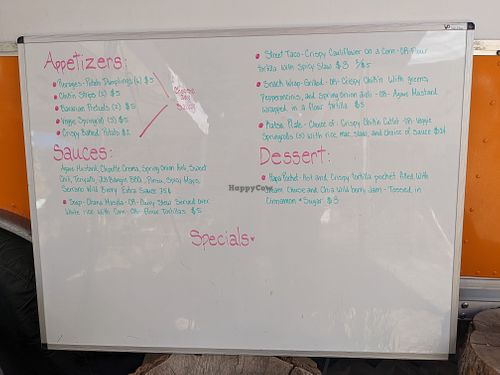 Appetizers:
• Pierogies - Potato Dumplings (6) $5
• Chik'n Strips (3) $5
• Bavarian Pretzels (2) $5
• Veggie Springroll (3) $5
• Crispy Baked Potato $2
Choose
any
Sauce
Sauces:
Agave Mustard, Chipotle Crema, Spring Onion Aioli, Sweet
Chili, Teriyaki, BBQ, Spicy Mayo,
Serrano Wild Berry Extra Sauce 75¢
• Soup - Chana Masala - OR - Stew Served over
White rice with Corn - OR - Flour Tortillas $5
• Street Taco - Crispy Cauliflower on a Corn - OR - Flour
tortilla with Spicy Slaw $3 2/$5
• Snack Wrap - Grilled - OR - Crispy Chik'n with greens,
Pepperoncinis, and Spring onion aioli - OR - Agave Mustard
wrapped in a flour tortilla $5
• Katsu Plate - Choice of: Crispy Chik'n Cutlet - OR - Veggie
Springrolls (3) with rice, mac, slaw, and choice of Sauce
Dessert:
• Papa Pocket - Hot and Crispy tortilla pocket filled with
Cream Cheese and Chia Wild berry Jam - Tossed in
Cinnamon + Sugar $3
HappyCow
Specials♥